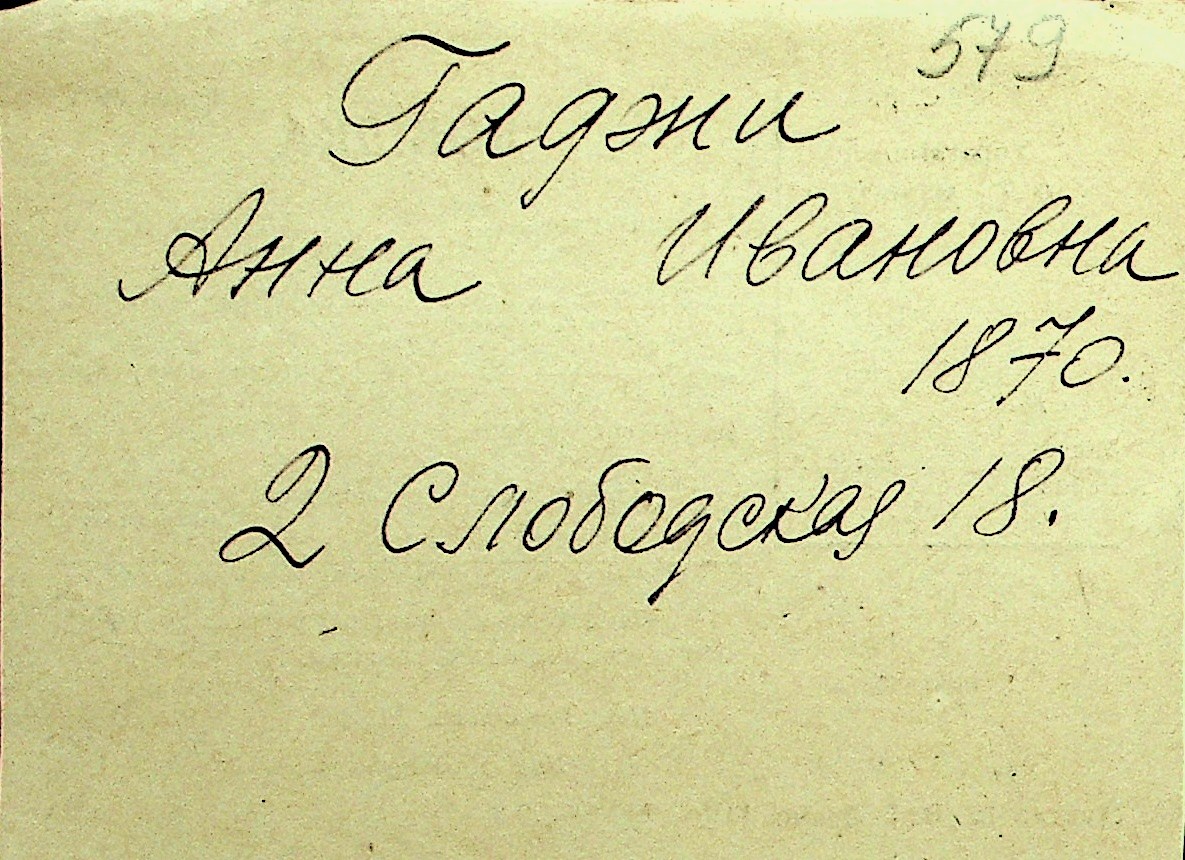 579
Гаджи
Анна Ивановна
1870.
2 Слободская 18.